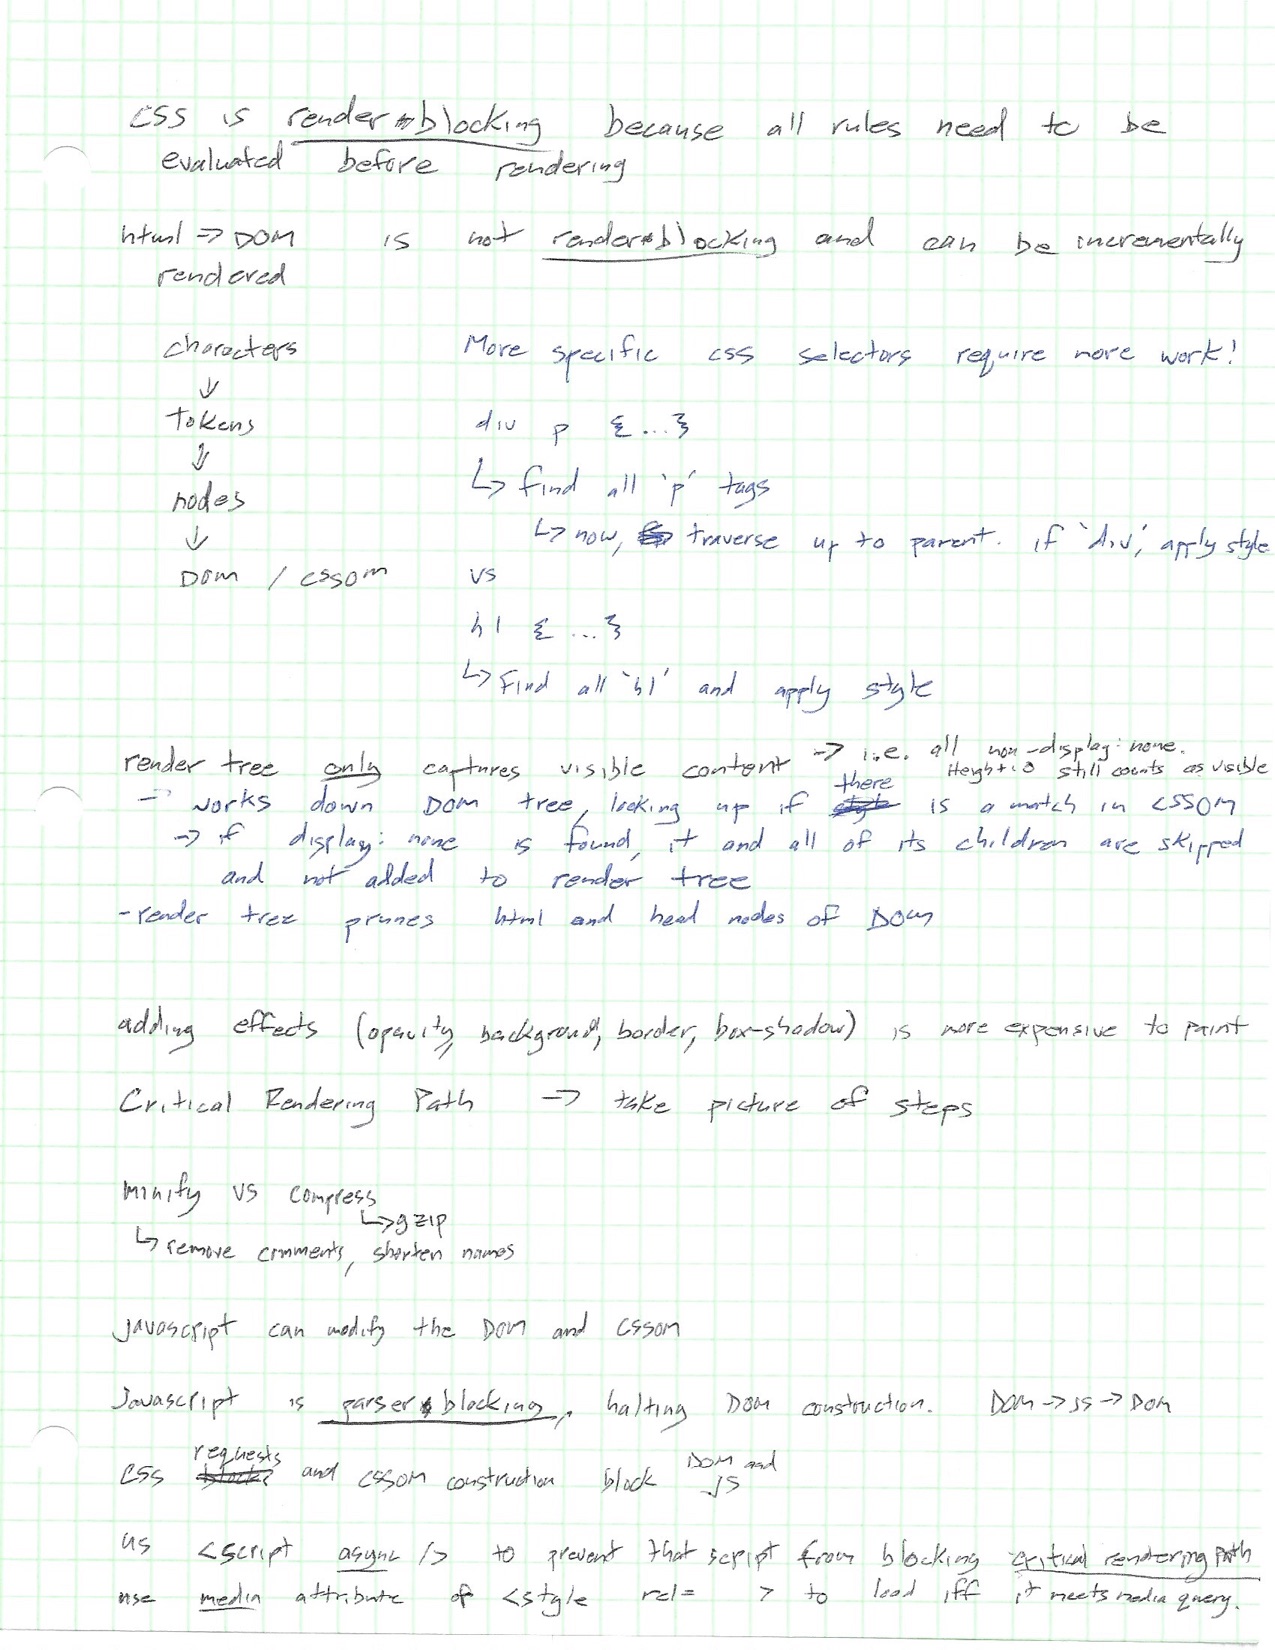 CSS is render-blocking because all rules need to be
evaluated before rendering
html => DOM is not render-blocking and can be incrementally
rendered
characters
↓
Tokens
↓
nodes
↓
DOM / CSSOM
More specific css selectors require more work!
div p {...}
↳ find all 'p' tags
↳ now, traverse up to parent. if 'div', apply style
vs
h1 {...}
↳ find all 'h1' and apply style
render tree only captures visible content -> i.e. all non-display: none.
Height: 0 still counts as visible
- works down DOM tree, looking up if there is a match in CSSOM
-> if display: none is found, it and all of its children are skipped
and not added to render tree
- render tree prunes html and head nodes of DOM
adding effects (opacity, background, border, box-shadow) is more expensive to paint
Critical Rendering Path -> take picture of steps
minify vs compress
↳ gzip
↳ remove comments, shorten names
javascript can modify the DOM and CSSOM
Javascript is parser blocking, halting DOM construction. DOM -> JS -> DOM
CSS requests and CSSOM construction block DOM and JS
us <script async /> to prevent that script from blocking critical rendering path
use media attribute of <style rel= > to load iff it meets media query.